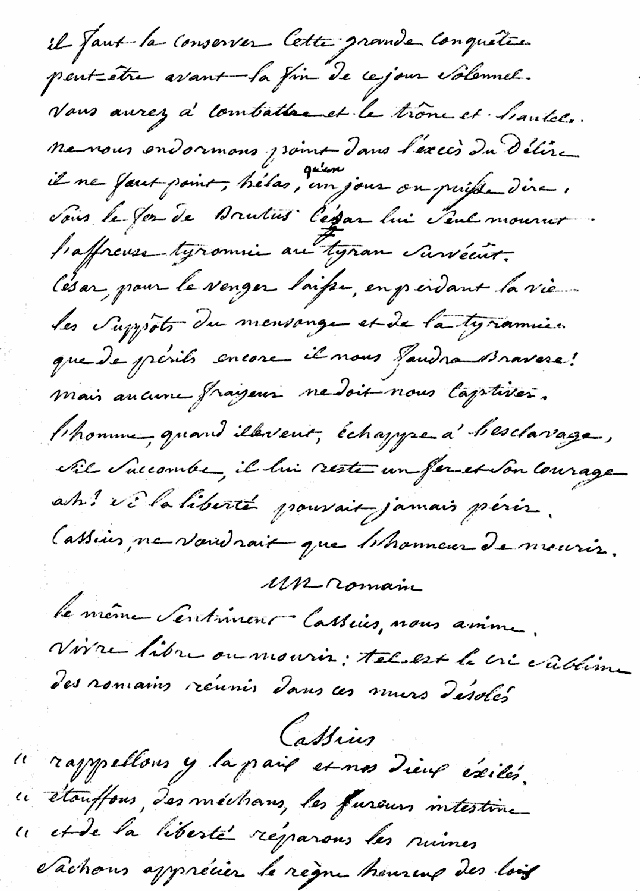 il faut la conserver cette grande conquête
peut-être avant la fin de ce jour solennel.
vous aurez à combattre et le trône et l'autel.
ne nous endormons point dans l'excès du délire
il ne faut point, hélas, qu'un jour on puisse dire,
sous le fer de Brutus César lui seul mourut
l'affreuse tyrannie au tyran survécût.
César, pour le venger laisse, en perdant la vie
les suppôts du mensonge et de la tyrannie.
que de périls encore il nous faudra Braver!
mais aucune frayeur ne doit nous captiver.
l'homme, quand il le veut, échappe à l'esclavage,
s'il succombe, il lui reste un fer et son courage
ah! si la liberté pouvait jamais périr,
Cassius, ne voudrait que l'honneur de mourir.
un romain
le même sentiment Cassius, nous anime,
vivre libre ou mourir: tel est le cri sublime
des romains réunis dans ces murs désolés
Cassius
" rappellons y la paix et nos dieux éxilés.
" étouffons, des méchans, les fureurs intestine
" et de la liberté réparons les ruines
sachons apprécier le règne heureux des lois